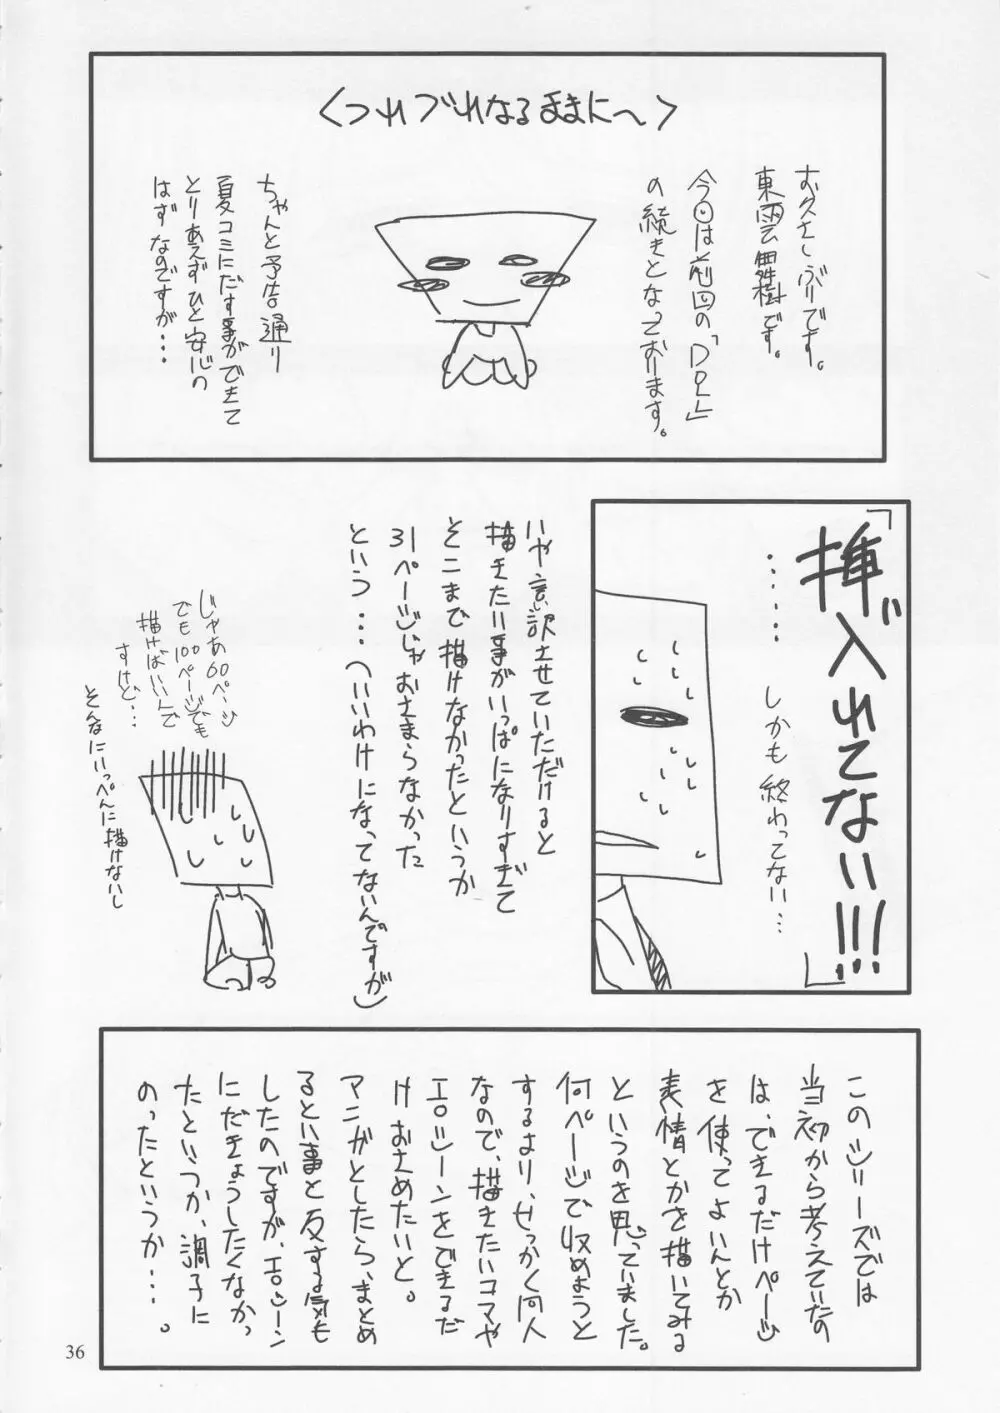 ＜つれづれなるままに～＞
お久しぶりです。
東雲
樹です。
今回は前回の「DOL」
の続きとなっております。
ちゃんと予告通り
夏コミにだす事ができて
とりあえずひと安心の
はずなのですが・・・
「挿入れてない!!!」
・・・・・・しかも終わってない…
いや言い訳させていただけると
描きたい事がいっぱになりすぎて
そこまで描けなかったというか
31ページじゃおさまらなかった
という・・・(いいわけになってないんですが)
じゃあ60ページ
でも100ページでも
描けばいいんで
すけど…
そんなにいっぺんに描けないし
このシリーズでは
当初から考えていたの
は、できるだけページ
を使ってよいんとか
表情とかを描いてみる
というのを思っていました。
何ページで収めようと
するより、せっかく同人
なので、描きたいコマや
エロシーンをできるだ
けおさめたいと。
マンガとしたら、まとめ
るとい事と反する気も
したのですが、エロシーン
にだきょうしたくなかっ
たというか、調子に
のったというか・・・。
36